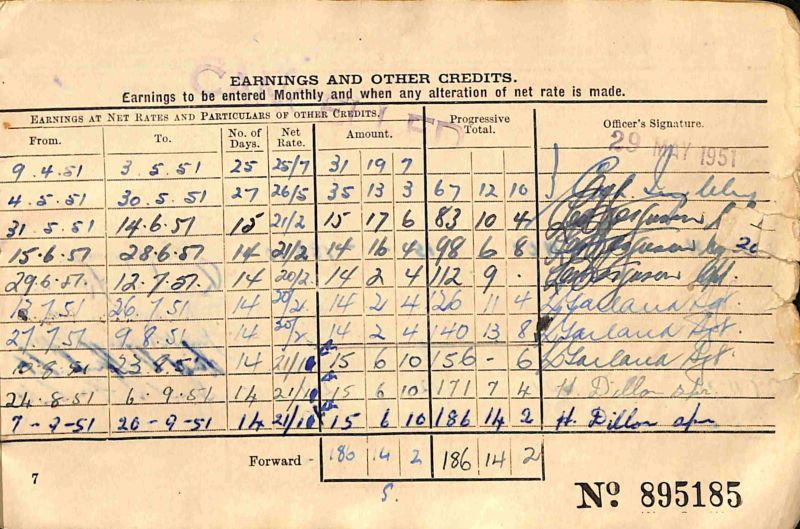 CANCELLED
EARNINGS AND OTHER CREDITS.
Earnings to be entered Monthly and when any alteration of net rate is made.
EARNINGS AT NET RATES AND PARTICULARS OF OTHER CREDITS.
From. To. No. of Days. Net Rate. Amount. Progressive Total. Officer's Signature.
29 MAY 1951
9.4.51 3.5.51 25 25/7 31 19 7
4.5.51 30.5.51 27 26/5 35 13 3 67 12 10
31.5.51 14.6.51 15 21/2 15 17 6 83 10 4
15.6.51 28.6.51 14 21/2 14 16 4 98 6 8
29.6.51 12.7.51 14 20/2 14 2 4 112 9 .
13.7.51 26.7.51 14 20/2 14 2 4 126 11 4 Garland Sgt.
27.7.51 9.8.51 14 20/2 14 2 4 140 13 8 Garland Sgt.
10.8.51 23.8.51 14 21/10 15 6 10 156 - 6 Garland Sgt.
24.8.51 6.9.51 14 21/10 15 6 10 171 7 4 H. Dillon spr.
7-9-51 20-9-51 14 21/10 15 6 10 186 14 2 H. Dillon spr.
Forward - 186 14 2 186 14 2
7
Nº 895185